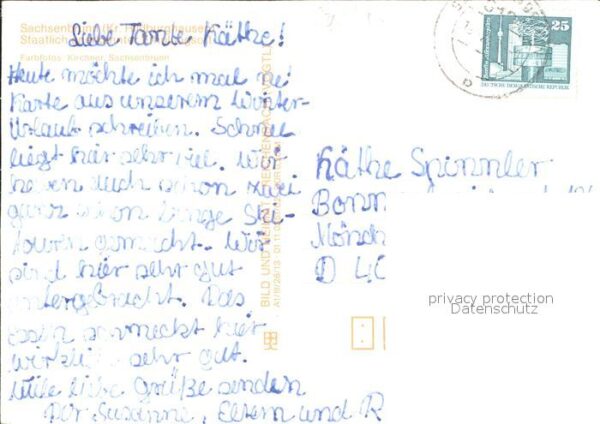 Sachsenbrunn (Kr. Hildburghausen)
Staatlich
Farbfotos: Kirchner, Sachsenbrunn
Liebe Tante Käthe!
Heute möchte ich mal ne'
Karte aus unserem Winter-
Urlaub schreiben. Schnee
liegt hier sehr viel. Wir
haben auch schon zwei
ganz schön lange Ski-
touren gemacht. Wir
sind hier sehr gut
untergebracht. Das
Essen schmeckt hier
wirklich sehr gut.
Viele liebe Grüße senden
Dir Susanne, Eltern und R
BILD UND HEIMAT REICHENBACH (VOGTL)
Käthe Spinnler
Bonn
Mönch
D
25
DEUTSCHE DEMOKRATISCHE REPUBLIK
privacy protection
Datenschutz